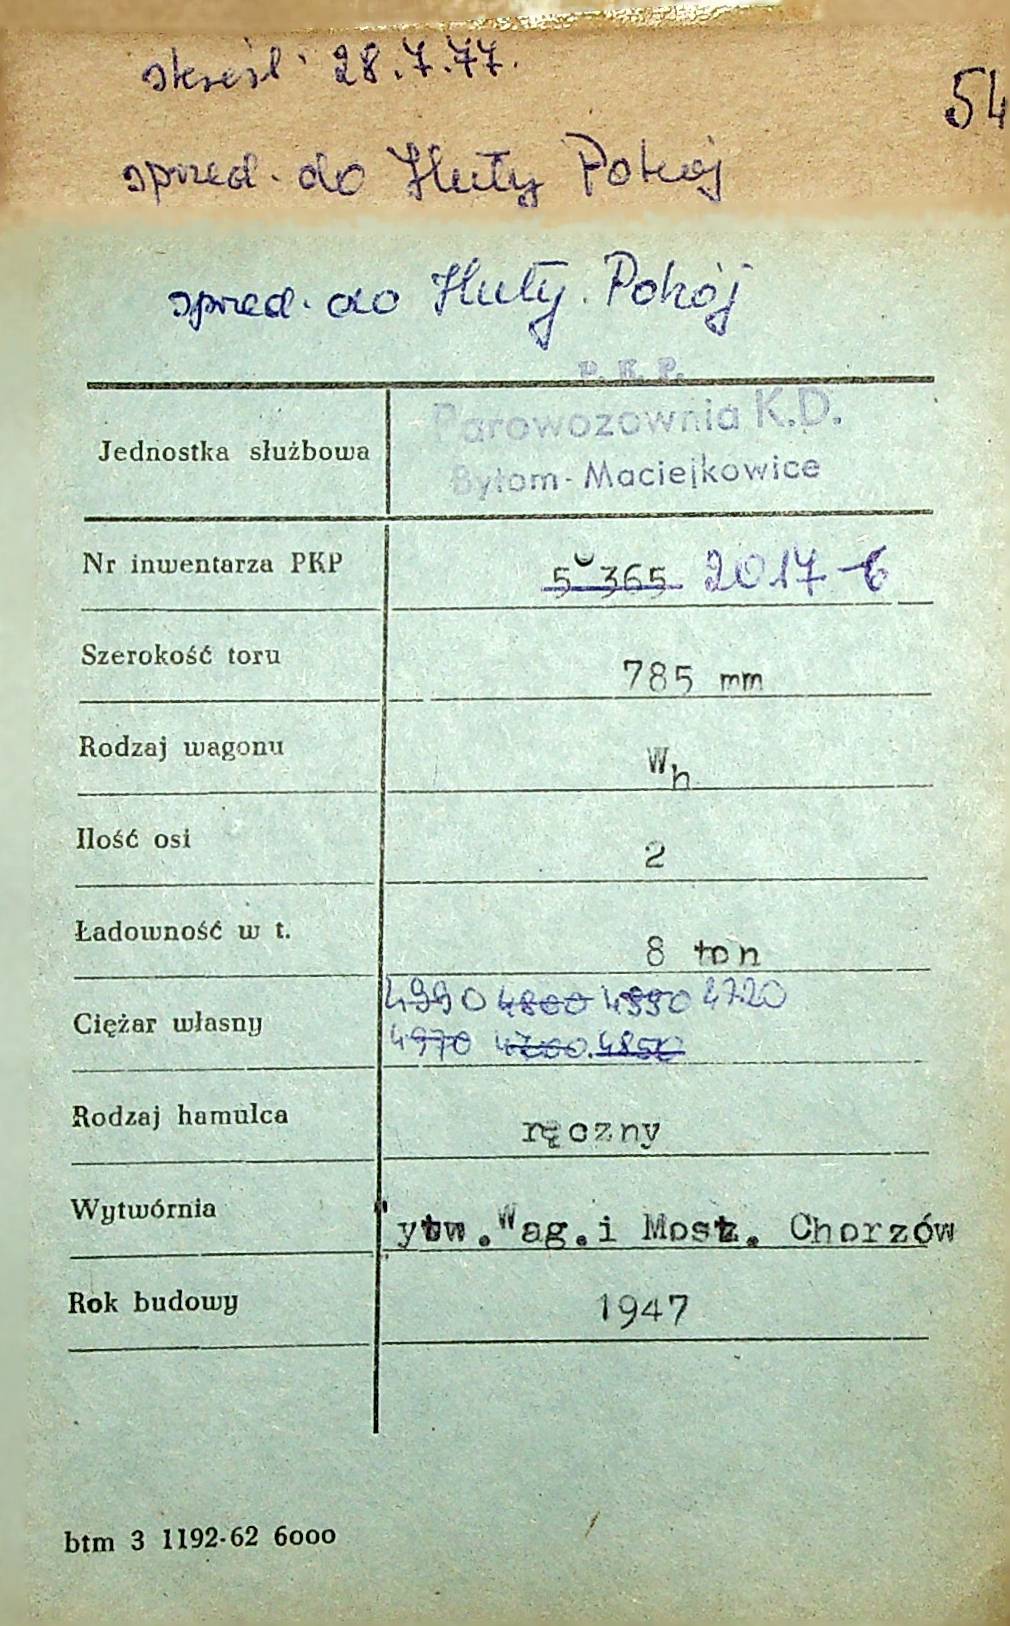 skreśl. 28.7.77.
54
sprzed. do Huty Pokój
sprzed. do Huty Pokój
P. K. P.
Jednostka służbowa Parowozownia K.D.
Bytom-Maciejkowice
Nr inwentarza PKP 5 365 2017-6
Szerokość toru 785 mm
Rodzaj wagonu Wh
Ilość osi 2
Ładowność w t. 8 ton
Ciężar własny 4990 4800 4990 4720
4970 4700 4850
Rodzaj hamulca ręczny
Wytwórnia ytw.Wag.i Most. Chorzów
Rok budowy 1947
btm 3 1192-62 6000